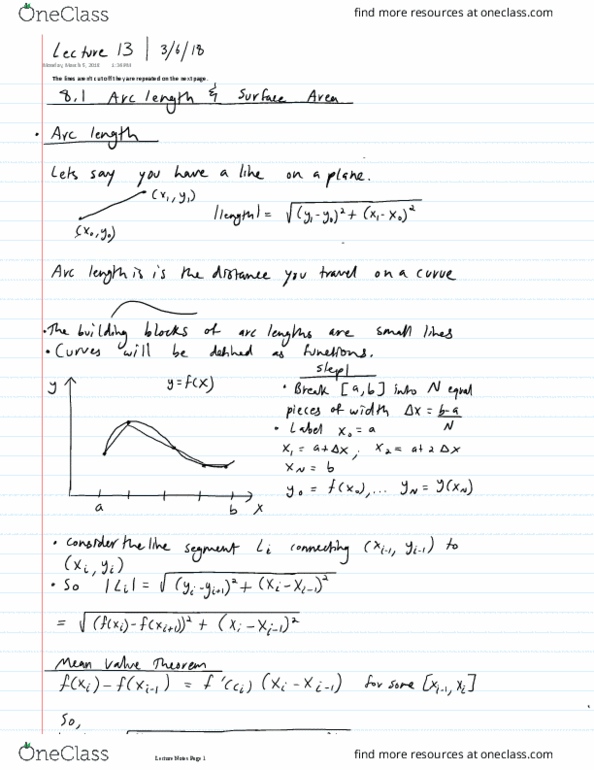 OneClass
find more resources at oneclass.com
Lecture 13 | 3/6/18
Monday, March 5, 2018 1:36 PM
The lines aren't cut off they are repeated on the next page.
8.1 Arc length & Surface Area
• Arc length
Lets say you have a line on a plane.
(x₁, y₁)
|length| = √(y₁-y₀)² + (x₁-x₀)²
(x₀, y₀)
Arc length is is the distance you travel on a curve
• The building blocks of arc lengths are small lines
• Curves will be defined as functions.
step 1
y
y = f(x)
• Break [a,b] into N equal
pieces of width Δx = b-a/N
• Label x₀ = a
x₁ = a+Δx, x₂ = a+2Δx
x_N = b
y₀ = f(x₀), ... y_N = y(x_N)
a b x
• consider the line segment Lᵢ connecting (xᵢ₋₁, yᵢ₋₁) to
(xᵢ, yᵢ)
• So |Lᵢ| = √(yᵢ-yᵢ₊₁)² + (xᵢ-xᵢ₋₁)²
= √(f(xᵢ)-f(xᵢ₊₁))² + (xᵢ-xᵢ₋₁)²
Mean Value Theorem
f(xᵢ)-f(xᵢ₋₁) = f'(cᵢ) (xᵢ-xᵢ₋₁) for some [xᵢ₋₁, xᵢ]
So,
Lecture Notes Page 1
OneClass
find more resources at oneclass.com